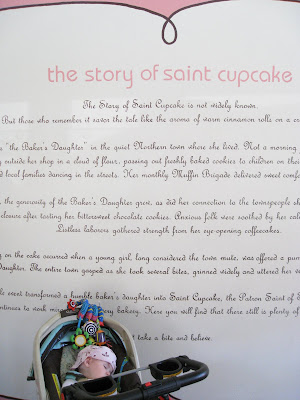 the story of saint cupcake
The Story of Saint Cupcake is not widely known.
But those who remember it savor the tale like the aroma of warm cinnamon rolls on a
"the Baker's Daughter" in the quiet Northern town where she lived. Not a morning
outside her shop in a cloud of flour, passing out freshly baked cookies to children on their
local families dancing in the streets. Her monthly Muffin Brigade delivered sweet
the generosity of the Baker's Daughter grew, as did her connection to the townspeople
closure after tasting her bittersweet chocolate cookies. Anxious folk were soothed by her
Listless laborers gathered strength from her eye-opening coffeecakes.
on the cake occurred when a young girl, long considered the town mute, was offered a
Daughter. The entire town gasped as she took several bites, grinned widely and uttered her
event transformed a humble baker's daughter into Saint Cupcake, the Patron Saint of
continues to work bakery. Here you will find that there still is plenty of
take a bite and believe.